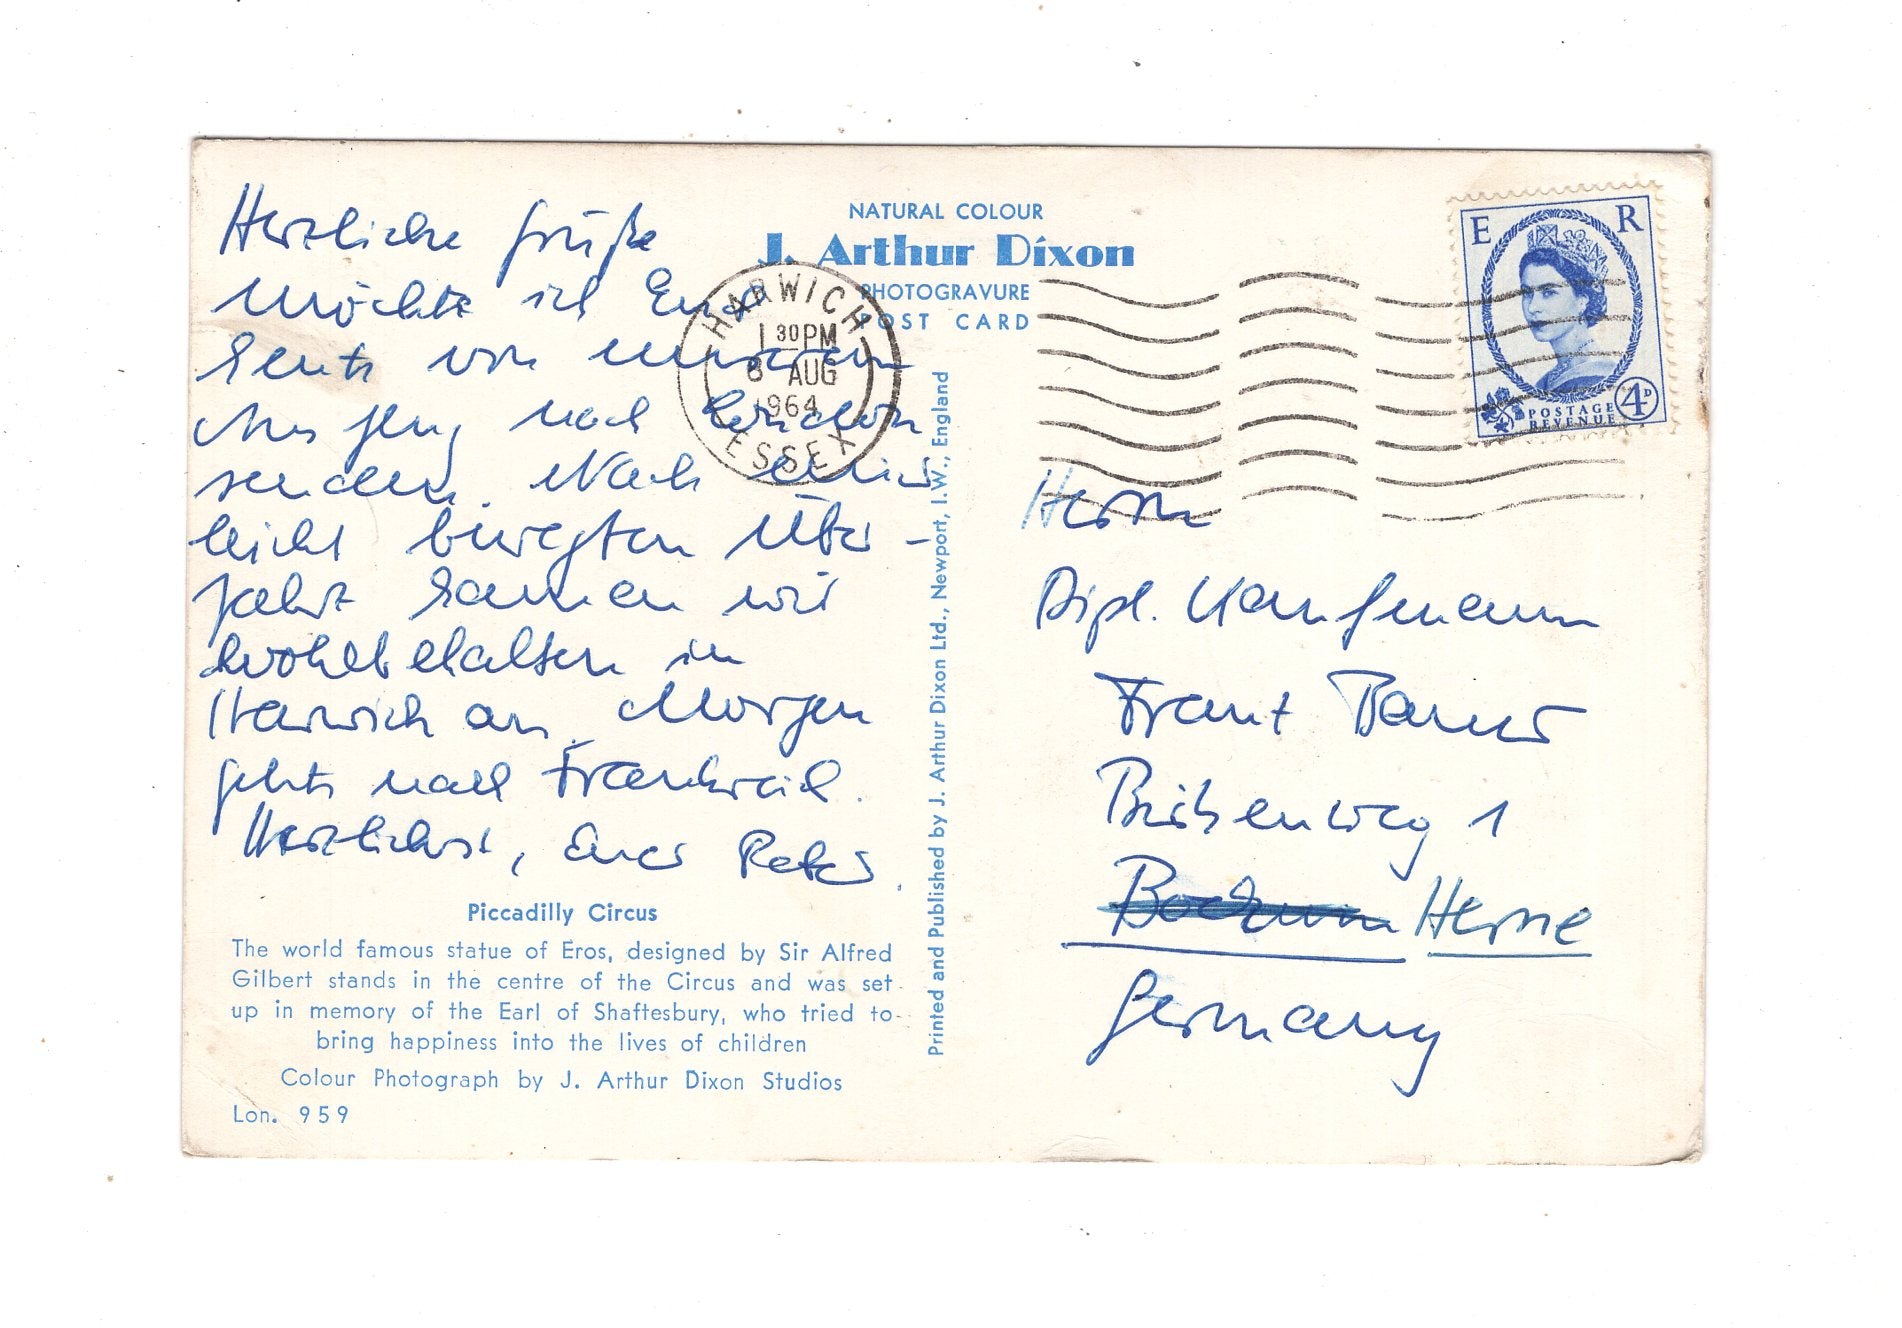 Herzliche Grüße
möchte ich Euch
heute von unserem
Ausflug nach London
senden. Nach einer
leicht bewegten Über-
fahrt kamen wir
wohlbehalten in
Harwich an. Morgen
gehts nach Frankreich.
Herzlichst, Euer Peter.
Piccadilly Circus
The world famous statue of Eros, designed by Sir Alfred
Gilbert stands in the centre of the Circus and was set
up in memory of the Earl of Shaftesbury, who tried to
bring happiness into the lives of children
Colour Photograph by J. Arthur Dixon Studios
Lon. 959
NATURAL COLOUR
J. Arthur Dixon
PHOTOGRAVURE
POST CARD
HARWICH
1 30 PM
AUG
1964
ESSEX
Printed and Published by J. Arthur Dixon Ltd., Newport, I.W., England
E R
POSTAGE
REVENUE
4D
Herrn
Dipl. Kaufmann
Franz Bauer
1
Bochum Herne
Germany